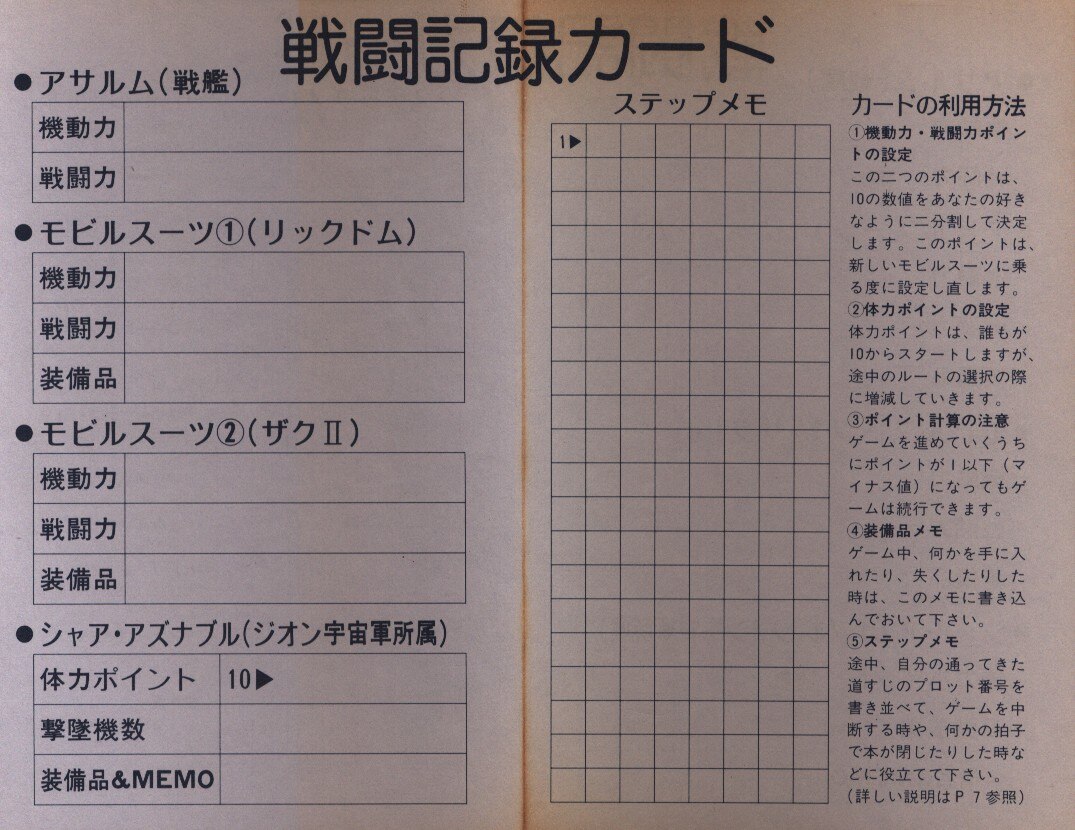 戦闘記録カード
●アサルム(戦艦)
機動力
戦闘力
●モビルスーツ①(リックドム)
機動力
戦闘力
装備品
●モビルスーツ②(ザクⅡ)
機動力
戦闘力
装備品
●シャア・アズナブル(ジオン宇宙軍所属)
体力ポイント 10▶
撃墜機数
装備品&MEMO
ステップメモ
1▶
カードの利用方法
①機動力・戦闘力ポイン
トの設定
この二つのポイントは、
10の数値をあなたの好き
なように二分割して決定
します。このポイントは、
新しいモビルスーツに乗
る度に設定し直します。
②体力ポイントの設定
体力ポイントは、誰もが
10からスタートしますが、
途中のルートの選択の際
に増減していきます。
③ポイント計算の注意
ゲームを進めていくうち
にポイントが1以下(マ
イナス値)になってもゲ
ームは続行できます。
④装備品メモ
ゲーム中、何かを手に入
れたり、失くしたりした
時は、このメモに書き込
んでおいて下さい。
⑤ステップメモ
途中、自分の通ってきた
道すじのプロット番号を
書き並べて、ゲームを中
断する時や、何かの拍子
で本が閉じたりした時な
どに役立てて下さい。
(詳しい説明はP7参照)